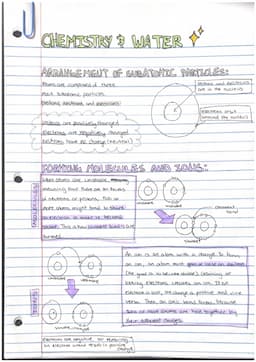 CHEMISTRY & WATER
ARRANGEMENT OF SUBATOMIC PARTICLES:
Atoms are composed of three
main subatomic particles:
protons, neutrons and electrons!
Protons and neutrons
are in the nucleus
Electrons orbit
around the nucleus
Protons are positively charged
Electrons are negatively charged
Neutrons have no charge (neutral)
FORMING MOLECULES AND IONS:
MOLECULES
When atoms are unstable,
meaning that there are
of electrons or protons, two or
more atoms might tend to share
an electron in order to become
stable. This is how covalent bonds are
formed.
unstable
unstable
covalent
bond
stable
IONS
An ion is an atom with a charge. To form
an ion, an atom must gain or lose an electron
(the goal is to become stable). Gaining or
losing electrons creates an ion. If an
electron is lost, the charge is positive, and vice
versa. Then, an ionic bond forms, because
two or more atoms are held together by
their different charges.